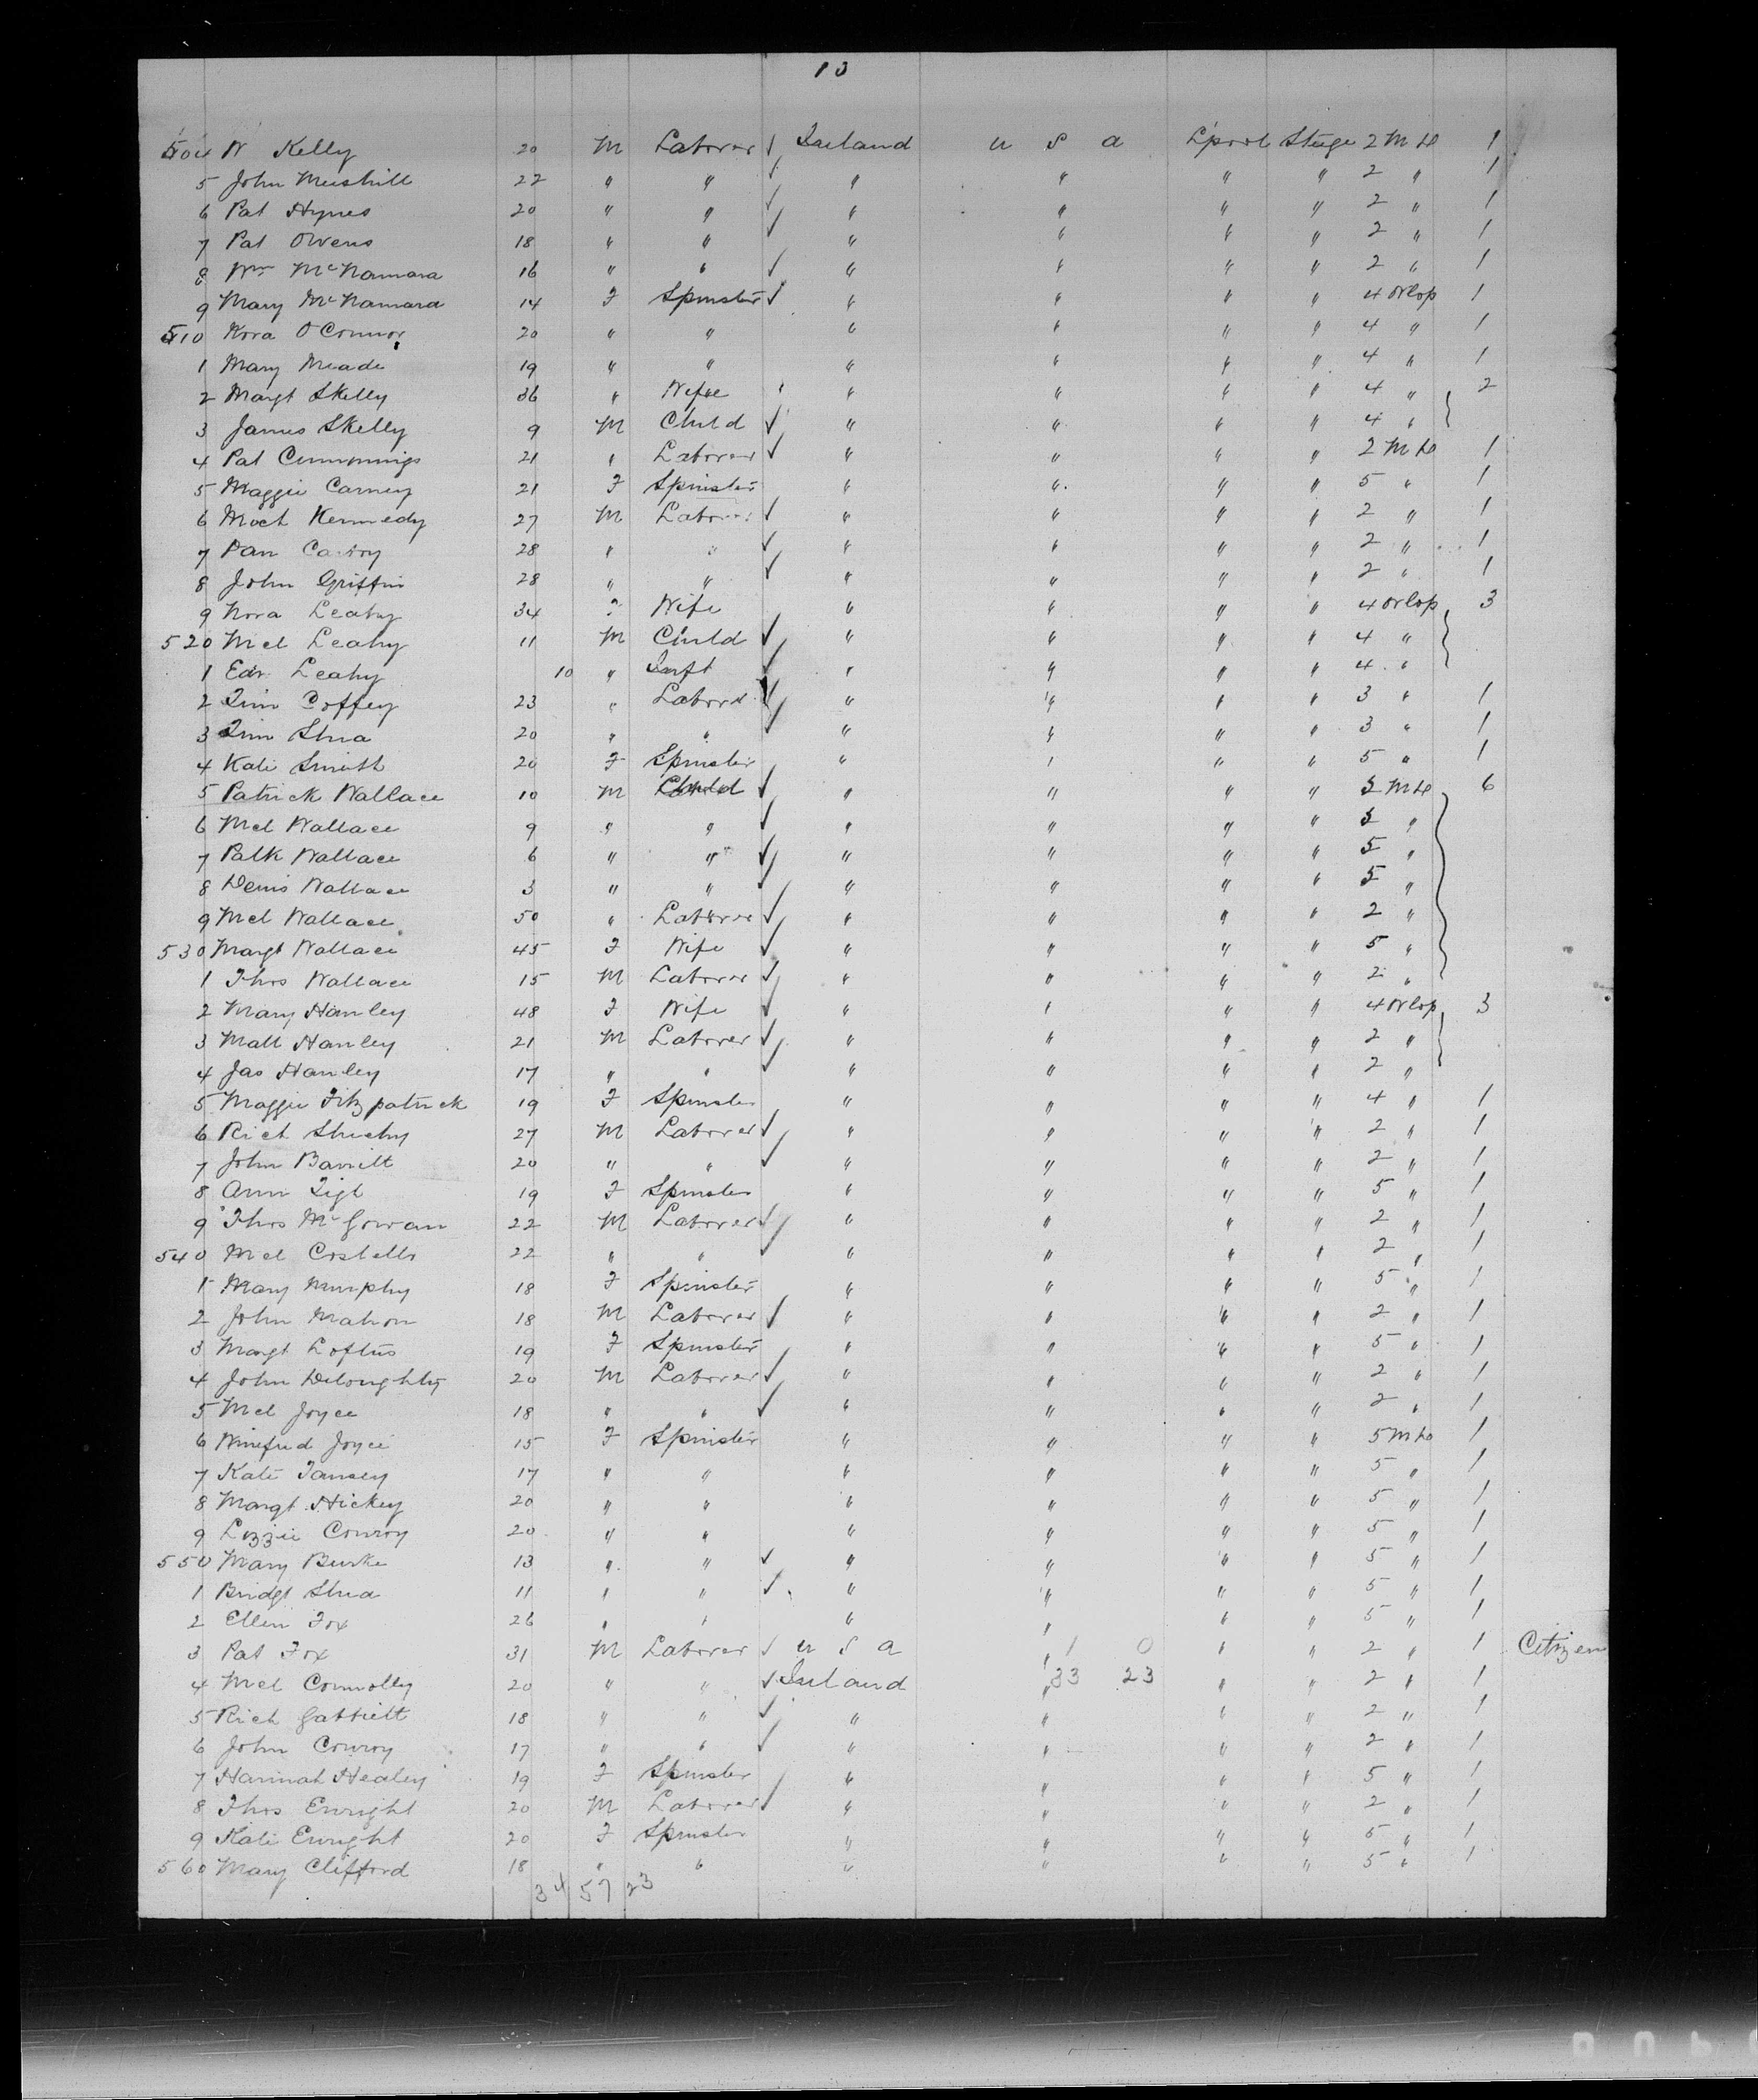 13
504 W Kelly 20 M Laborer ✓ Ireland u s a L'pool Steege 2 M De 1
5 John Mushill 22 " " ✓ " " " " 2 " 1
6 Pat Hynes 20 " " ✓ " " " " 2 " 1
7 Pat Owens 18 " " ✓ " " " " 2 " 1
8 Wm McNamara 16 " " ✓ " " " " 2 " 1
9 Mary McNamara 14 F Spinster ✓ " " " " 4 Orlop 1
510 Nora O'Connor 20 " " " " " " 4 " 1
1 Mary Meade 19 " " " " " " 4 " 1
2 Margt Skelly 36 " Wife " " " " 4 " 2
3 James Skelly 9 M Child ✓ " " " " 4 "
4 Pat Cummings 21 " Laborer ✓ " " " " 2 M De 1
5 Maggie Carney 21 F Spinster " " " " 5 " 1
6 Mich Kennedy 27 M Laborer ✓ " " " " 2 " 1
7 Dan 28 " " ✓ " " " " 2 " 1
8 John Griffin 28 " " ✓ " " " " 2 " 1
9 Nora Leahy 34 F Wife " " " " 4 Orlop 3
520 Mcl Leahy 11 M Child ✓ " " " " 4 "
1 Edr Leahy 10 " Inft ✓ " " " " 4 "
2 Tim Coffey 23 " Laborer ✓ " " " " 3 " 1
3 Tim Shea 20 " " ✓ " " " " 3 " 1
4 Kate Smith 20 F Spinster " " " " 5 " 1
5 Patrick Wallace 10 M Child ✓ " " " " 5 M De 6
6 Mcl Wallace 9 " " ✓ " " " " 5 "
7 Patk Wallace 6 " " ✓ " " " " 5 "
8 Denis Wallace 3 " " ✓ " " " " 5 "
9 Mcl Wallace 50 " Laborer ✓ " " " " 2 "
530 Margt Wallace 45 F Wife ✓ " " " " 5 "
1 Thos Wallace 15 M Laborer ✓ " " " " 2 "
2 Mary Hanley 48 F Wife ✓ " " " " 4 Orlop 3
3 Matt Hanley 21 M Laborer ✓ " " " " 2 "
4 Jas Hanley 17 " " ✓ " " " " 2 "
5 Maggie Fitzpatrick 19 F Spinster " " " " 4 " 1
6 Rich Sheehy 27 M Laborer ✓ " " " " 2 " 1
7 John Barrett 20 " " ✓ " " " " 2 " 1
8 Ann Tige 19 F Spinster " " " " 5 " 1
9 Thos McGowan 22 M Laborer ✓ " " " " 2 " 1
540 Mcl Costello 22 " " ✓ " " " " 2 " 1
1 Mary Murphy 18 F Spinster " " " " 5 " 1
2 John Mahon 18 M Laborer ✓ " " " " 2 " 1
3 Margt Loftus 19 F Spinster " " " " 5 " 1
4 John Deloughty 20 M Laborer ✓ " " " " 2 " 1
5 Mcl Joyce 18 " " ✓ " " " " 2 " 1
6 Winefred Joyce 15 F Spinster " " " " 5 M De 1
7 Kate Tansey 17 " " " " " " 5 " 1
8 Margt Hickey 20 " " " " " " 5 " 1
9 Lizzie Conroy 20 " " " " " " 5 " 1
550 Mary Burke 13 " " ✓ " " " " 5 " 1
1 Bridgt Shea 11 " " ✓ " " " " 5 " 1
2 Ellen Fox 26 " " " " " " 5 " 1
3 Pat Fox 31 M Laborer ✓ u s a " 1 0 " " 2 " 1 Citizen
4 Mcl Connolly 20 " " ✓ Ireland " 33 23 " " 2 " 1
5 Rich 18 " " ✓ " " " " 2 " 1
6 John Conroy 17 " " ✓ " " " " 2 " 1
7 Hannah Healey 19 F Spinster " " " " 5 " 1
8 Thos Enright 20 M Laborer ✓ " " " " 2 " 1
9 Kate Enright 20 F Spinster " " " " 5 " 1
560 Mary Clifford 18 " " " " " " 5 " 1
34 57 23